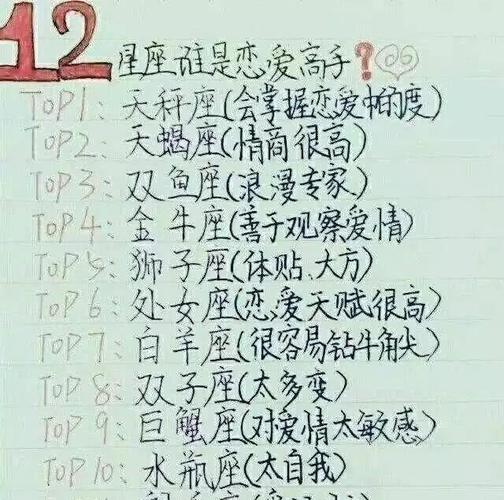 12星座谁是恋爱高手?
TOP1:天秤座(会掌握恋爱帕的度)
TOP2:天蝎座(情商很高)
TOP3:双鱼座(浪漫专家)
TOP4:金牛座(善于观察爱情)
TOP5:狮子座(体贴、大方)
TOP6:处女座(恋爱天赋很高)
TOP7:白羊座(很容易钻牛角尖)
TOP8:双子座(太多变)
TOP9:巨蟹座(对爱情太敏感)
TOP10:水瓶座(太自我)